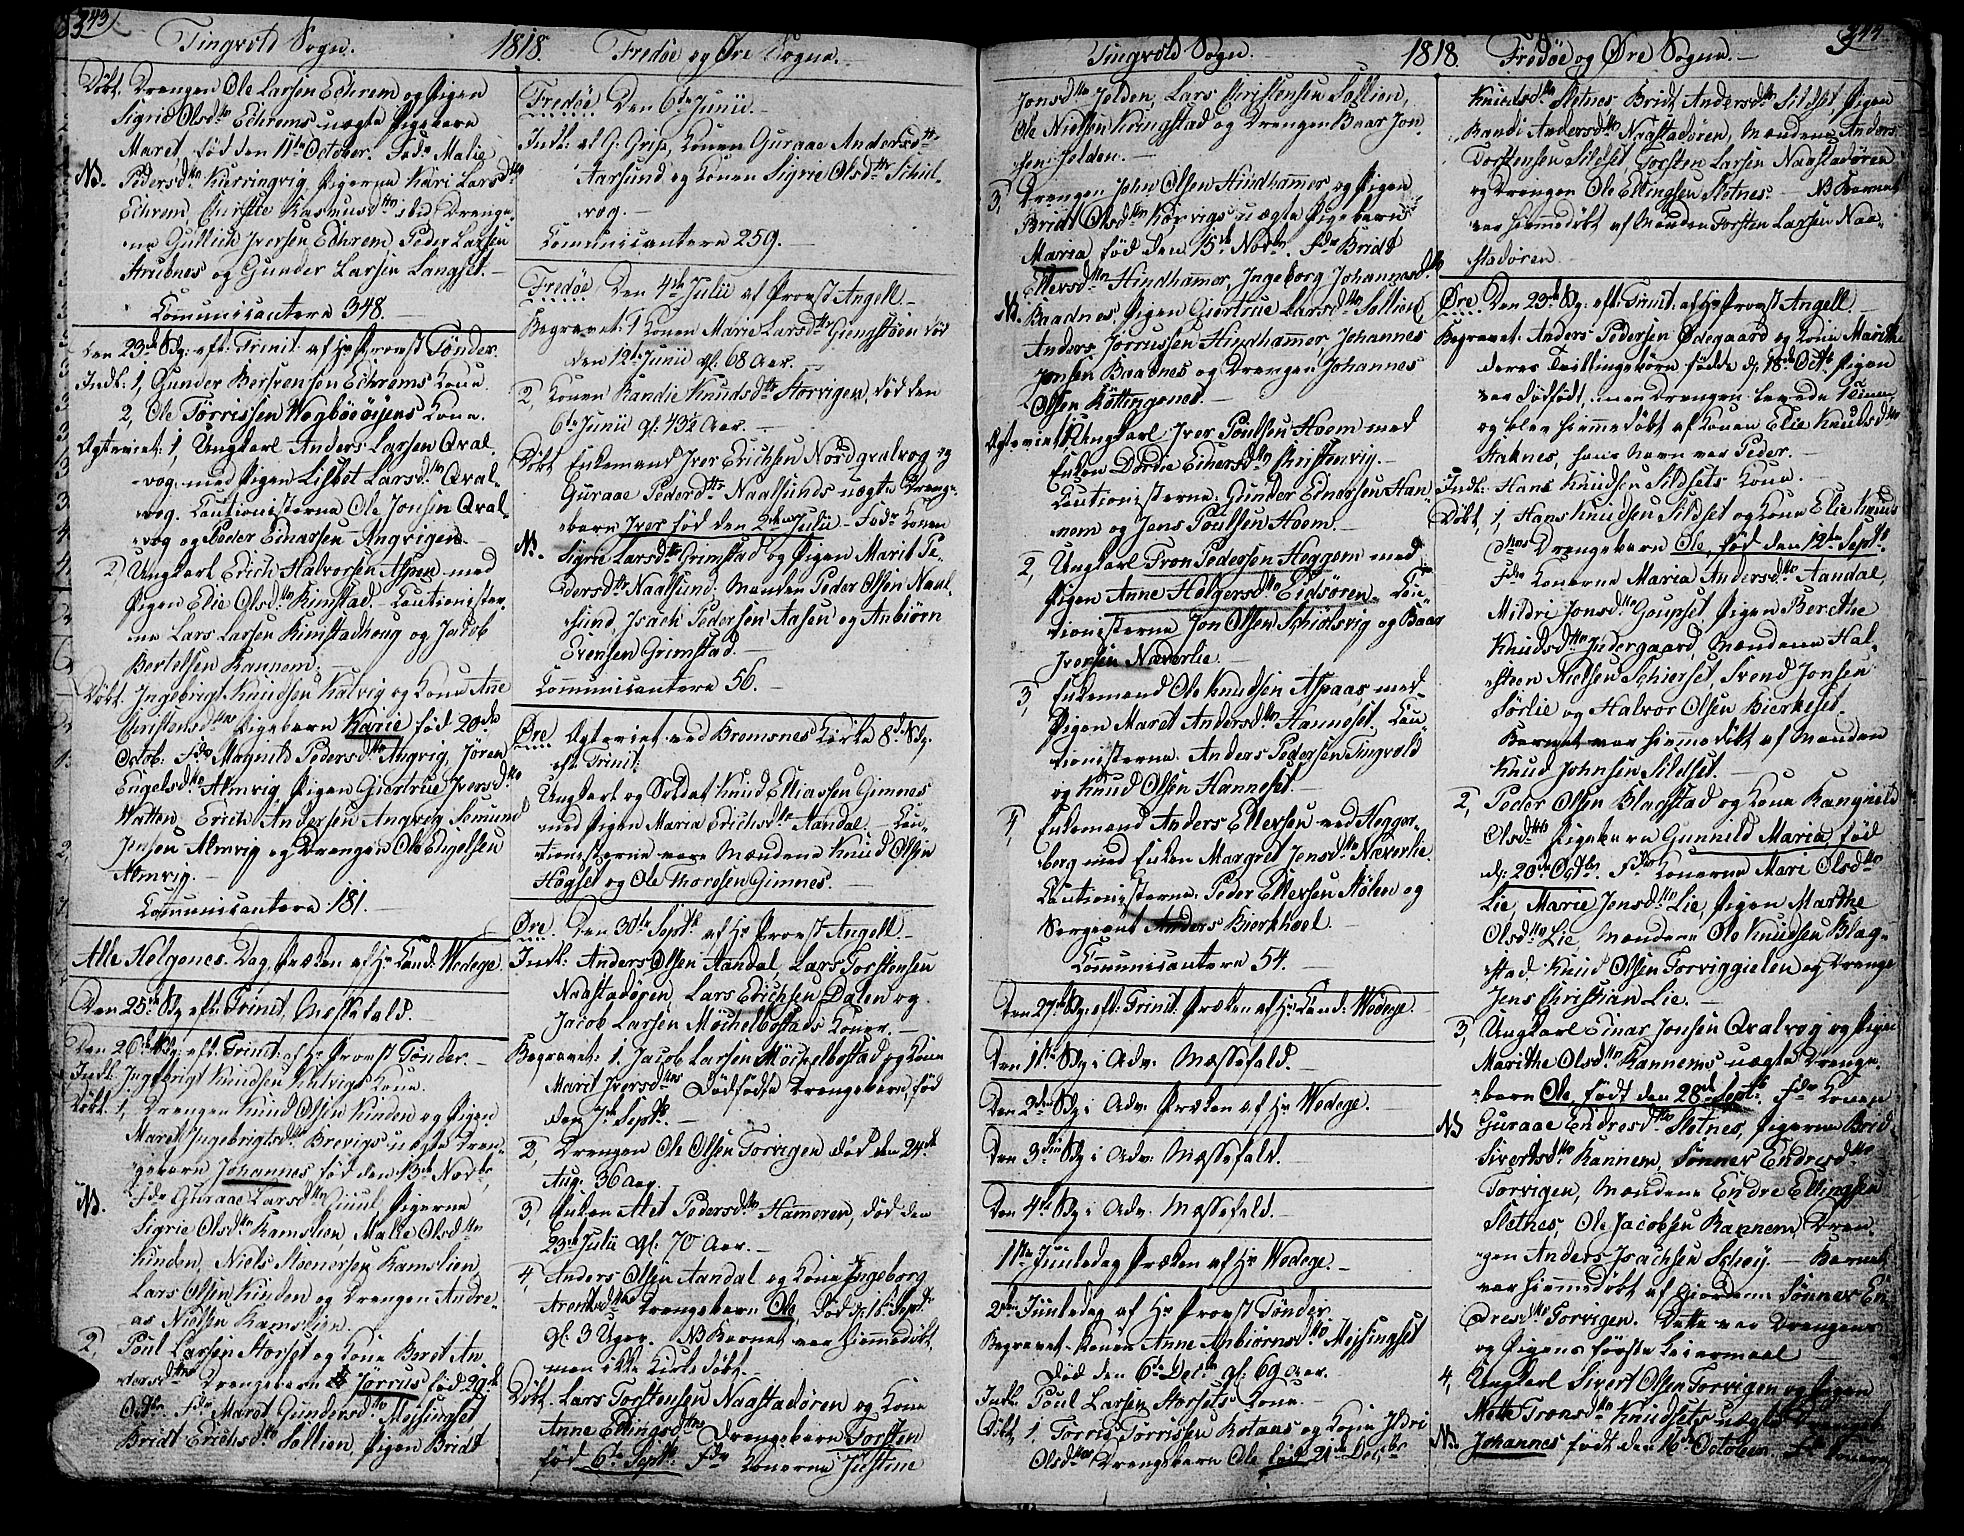 343.
Tingvold Sogn. 1818. Fredøe og Øre Sogne.
Döbt. Drengen Ole Larsen Echrem og Pigen
Sigrie Olsdtr Echrems uægte Pigebarn
Maret, fød den 11te October. Fadr Malie
NB. Pedersdtr Kierringvig, Pigerne Kari Larsdtr
Echrem, Christie Rasmusdtr ibid. Drenge-
ne Gullich Iversen Echrem, Peder Larsen
Strubnes og Gunder Larsen Langset.
Communicantere 348.
Den 23de Sdg: eft: Trinit. af Hr Provst Tönder.
Indl: 1, Gunder Berhrensen Echrems Kone.
2, Ole Törrissen Wogböeöijens Kone.
Ægteviet: 1, Ungkarl Anders Larsen Qval-
vog med Pigen Lisbet Larsdtr Qval-
vog. Cautionisterne Ole Jonsen Qval-
vog og Peder Einarsen Angvigen.
2, Ungkarl Erich Halvorsen Aspen med
Pigen Elie Olsdtr Rimstad. Cautionister-
ne Lars Larsen Rimstadhoug og Jacob
Bertelsen Kannem.
Döbt. Ingebrigt Knudsen Kalvig og Kone Ane
Christensdtrs Pigebarn Karie fød 20de
Octob: Fdr Magnild Pedersdtr Angvig, Jören
Engelsdtr Almvig Pigen Giertrue Iversdtr
Watten, Erich Andersen Angvig Semund
Jensen Almvig og Drengen Ole Engelsen
Almvig.
Communicantere 181.
Alle Helgenes Dag, Præken af Hr Cand: Wedege.
Den 25de Sdg eft: Trinit. Messefald.
Den 26de Sdg: eft: Trinit. af Hr Provst Tönder.
Indl: Ingebrigt Knudsen Kalvigs Kone.
Döbt. 1, Drengen Knud Olsen Kinden og Pigen
Maret Ingebrigtsdtr Brevigs uægte Dren-
gebarn Johannes fød den 13de Novbr.
NB. Fdr Guraae Larsdtr Juul, Pigerne
Sigrie Olsdtr Ramslien, Malie Olsdtr
Kinden, Niels Steenersen Ramslien
Lars Olsen Kinden og Drengen Andre-
as Nielsen Ramslien.
2, Poul Larsen Storset og Kone Beret An-
dersdtrs Drengebarn Torrus fød 29de
Octbr. Fdr Maret Gundersdtr Meisingset
Bridt Erichsdtr Sollien, Pigen Bridt
Fredøe Den 6te Junii.
Indl: af G. Grip, Konen Guraae Andersdtr
Aarsund og Konen Sigrie Olsdtr Schul-
vog.
Communicantere 259.
Fredøe Den 4de Julii af Provst Angell.
Begravet: 1 Konen Marie Larsdtr Giengstöen död
den 12te Junii gl: 68 Aar.
2, Konen Randie Knudsdtr Storvigen, död den
6te Junii gl: 43½ Aar.
Döbt Enkemand Iver Erichsen Nordqvalvog og
Guraae Pedersdtr Naalsunds uægte Drenge-
barn Iver fød den 2den Julii. Fadr Konen
NB. Sigrie Larsdtr Grimstad og Pigen Marit Pe-
dersdtr Naalsund; Manden Peder Olsen Naal-
sund, Isach Pedersen Aasen og Anbiörn
Evensen Grimstad.
Communicantere 56.
Øre Ægteviet ved Bremsnes Kirke 8de Sdg:
eft. Trinit.
Ungkarl og Soldat Knud Elliassen Gimnes
med Pigen Maria Erichsdtr Aandal. Cau-
tionisterne vare Mændene Knud Olsen
Högset og Ole Thoresen Gimnes.
Øre. Den 30te Septbr af Hr Provst Angell.
Indl: Anders Olsen Aandal, Lars Torstensen
Naastadören Lars Erichsen Dalen og
Jacob Larsen Möchelbostads Koner.
Begravet: 1, Jacob Larsen Möchelbostad og Kone
Marit Iversdtrs Dödfödte Drengebarn, fød
den 7de Septbr.
2, Drengen Ole Olsen Torvigen död den 24de
Aug. 36 Aar.
3, Enken Alet Pedersdtr Hameren, död den
23de Julii gl: 70 Aar.
4, Anders Olsen Aandal og Kone Ingeborg
Arentsdtrs Drengebarn Ole, Död d. 16de Septbr
gl: 3 Uger. NB Barnet var hiemmedöbt,
men ikke kirkedöbt.
Döbt. Lars Torstensen Naastadören og Kone
Anne Ellingsdtrs Drengebarn Torsten
fød 6te Septbr. Fdr Konerne Justine
344.
Tingvold Sogn. 1818 Fredøe og Øre Sogne.
Jonsdtr Jelden, Lars Christensen Sollien,
Ole Nielsen Kringstad og Drengen Baar Jon-
sen Jelden.
3, Drengen John Olsen Hindhammer og Pigen
Bridt Olsdtr Korvigs uægte Pigebarn
Maria fød den 15de Novbr. Fdr Bridt
Ellersdtr Hindhammer, Ingeborg Johannesdtr
NB. Baadnes Pigen Giertrue Larsdtr Sollien
Anders Jorrussen Hindhammer, Johannes
Jonsen Baadnes og Drengen Johannes
Olsen Röttingenes.
Ægteviet 1, Ungkarl Iver Poulsen Hoem med
Enken Dordie Einersdtr Christenvig.
Cautionisterne: Gunder Endresen Han-
nem og Jens Poulsen Hoem.
2, Ungkarl Tron Pedersen Heggem med
Pigen Anne Holgersdtr Eidsören. Cau-
tionisterne Jon Olsen Schiölsvig og Baar
Iversen Næverlie.
3, Enkemand Ole Knudsen Aspaas med
Pigen Maret Andersdtr Hanneset. Cau-
tionisterne: Anders Pedersen Tingvold
og Knud Olsen Hanneset.
4, Enkemand Anders Ellefsen ved Hegger-
berg med Enken Margret Jensdtr Næverlie
Cautionisterne: Peder Ellefsen Stölen og
Sergeant Anders Bierkhoel.
Communicantere 54.
Den 27de Sdg: eft: Trinit. Præken af Hr Cand: Wedege.
Den 1ste Sdg i Adv: Mæssefald.
Den 2den Sdg i Adv: Præken af Hr Wedege.
Den 3die Sdg i Adv: Mæssefald.
Den 4de Sdg i Adv: Mæssefald.
1ste Juuledag Præken af Hr Wedege.
2den Juuledag af Hr Provst Tönder.
Begravet. Konen Anne Anbiörnsdtr Meisingset
Död den 6te Decbr gl: 69 Aar.
Indl: Poul Larsen Storsets Kone.
Döbt 1, Torris Torrisen Rotaas og Kone Ildri
Olsdtrs Drengebarn Ole fød 21de Decbr
Knudsdtr Sletnes Bridt Andersdtr Sildset Pigen
Randi Andersdtr Naastadören, Mændene Anders
Torstensen Sildset Torsten Larsen Naastadören
og Drengen Ole Ellingsen Sletnes. NB Barnet
var hiemmedöbt af Manden Torsten Larsen Naa-
stadören.
Øre Den 23de Sdg: eft: Trinit. af Hr Provst Angell.
Begravet: Anders Pedersen Ødegaard og Kone Marithe
deres Tvillingebörn fødte d: 18de Octbr Pigen
var dödfödt, men Drengen levede 1 Time,
og blev hiemmedöbt af Konen Elie Knudsdtr
Staknes, hans Navn var Peder.
Indl: Hans Knudsen Sildsets Kone.
Döbt, 1, Hans Knudsen Sildset og Kone Elie Knuds
dtrs Drengebarn Ole, fød den 12te Septbr.
Fdr Konerne Maria Andersdtr Aandal,
Mildri Jonsdtr Goupset, Pigen Berethe
Knudsdtr Indergaard, Mændene Hal-
steen Nielsen Schierset, Svend Jonsen
Sörlie og Halvor Olsen Bierkeset.
Barnet var hiemmedöbt af Manden
Knud Johnsen Sildset.
2, Peder Olsen Blagstad og Kone Rangnild
Olsdtrs Pigebarn Gunnild Maria, fød
d: 20de Octbr. Fdr Konerne Mari Olsdtr
Lie, Marie Jensdtr Lie, Pigen Marthe
Olsdtr Lie, Mændene Ole Knudsen Blag-
stad, Knud Olsen Torviggielen og Drenge
Jens Christian Lie.
3, Ungkarl Einar Jonsen Qvalvog og Pigen
Marithe Olsdtr Kannems uægte Drenge-
barn Ole, født den 28de Septbr. Fdr Konen
NB Guraae Endresdtr Sletnes, Pigerne Brid
Sivertsdtr Kannem, Sönnev Endresdtr
Torvigen, Mændene Endre Ellingsen
Sletnes, Ole Jacobsen Kannem, Dren-
gen Anders Isachsen Schöy. Barnet
var hiemmedöbt af Giordem: Sönnev En-
dresdtr Torvigen. Dette var Drengens
og Pigens förste Leiermaal
4, Ungkarl Sivert Olsen Torvigen og Pigen
Mette Tronsdtr Knudsets uægte
NB. Johannes født den 16de October. Fdr Konerne